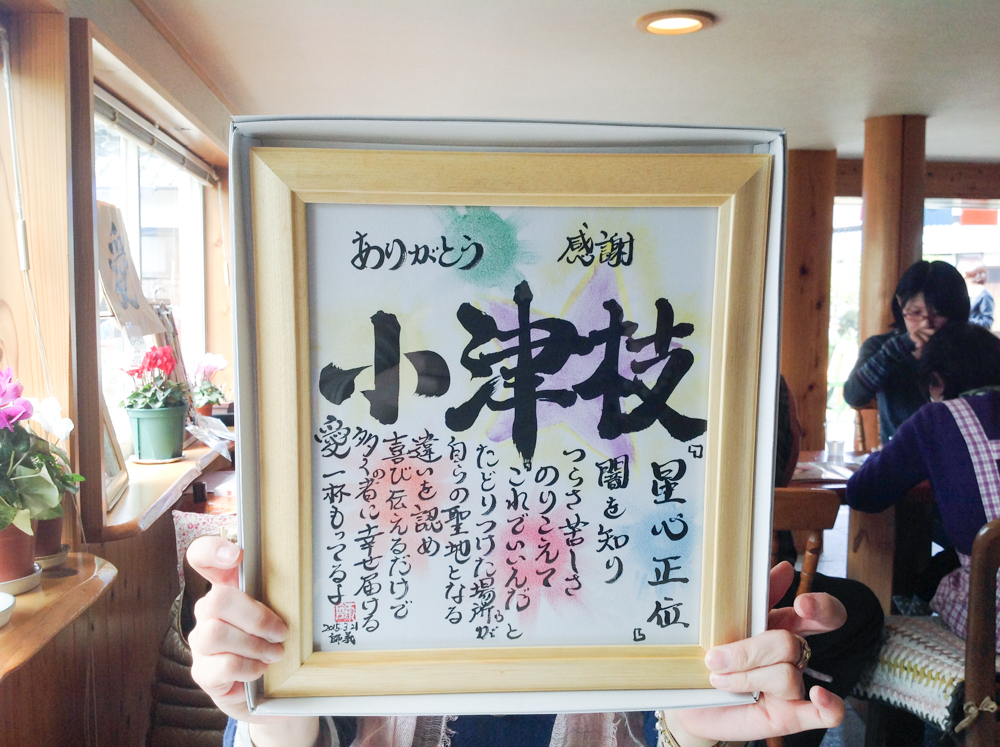 ありがとう 感謝
小津枝
『星心正位』
闇を知り
つらさ苦しさ
のりこえて
これでいいんだと
たどりつけた場所が
自らの聖地となる
違いを認め
喜び伝えるだけで
多くの者に幸せ届ける
愛一杯もってるよ
2015.3.21